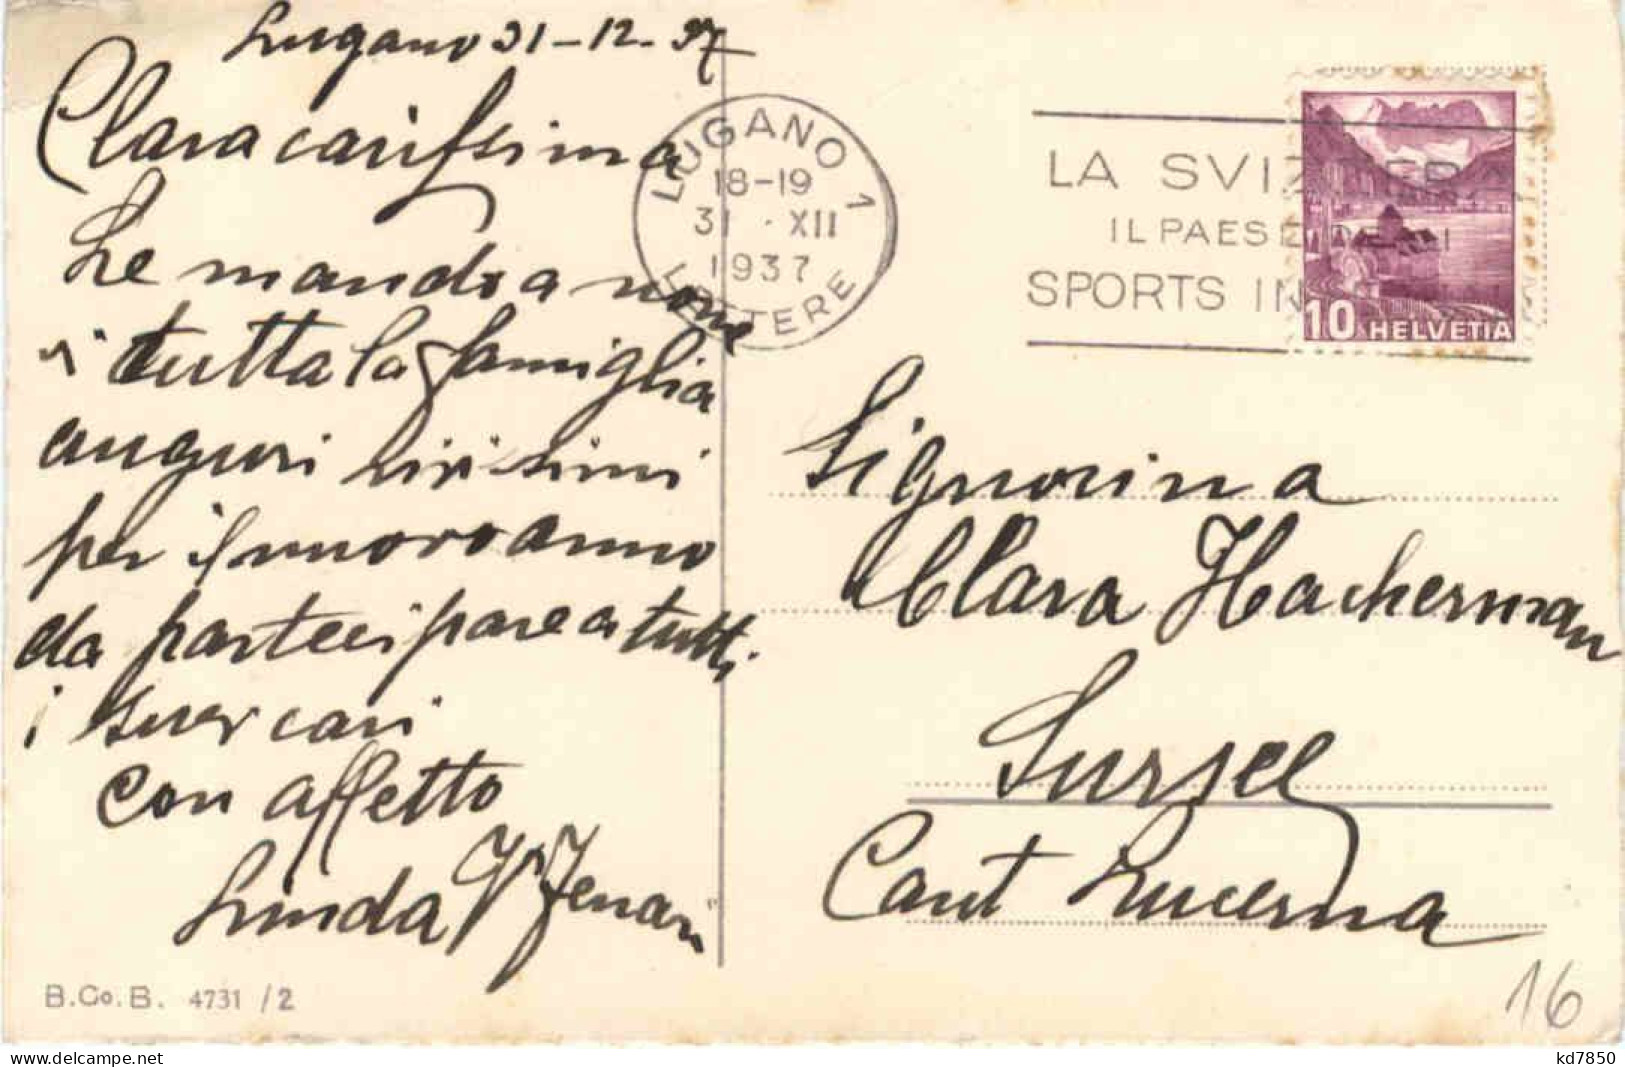 Lugano 31-12-37
Clara carissima
Le mando a nome
di tutta la famiglia
auguri vivissimi
per il nuovo anno
da partecipare a tutti
i suoi cari
con affetto
Linda
LUGANO 1
18-19
31 · XII
1937
LETTERE
LA SVIZZERA
IL PAESE DEGLI
SPORTS IN
10 HELVETIA
Signorina
Clara Hackerman
Sursee
Cant Lucerna
B.Co.B. 4731 /2
16
kd7850